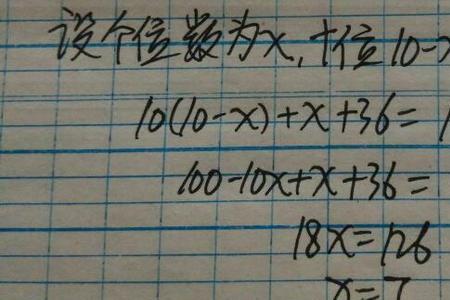 设个位数为x,十位10-x
10(10-x)+x+36=
100-10x+x+36=
18x=126
x=7